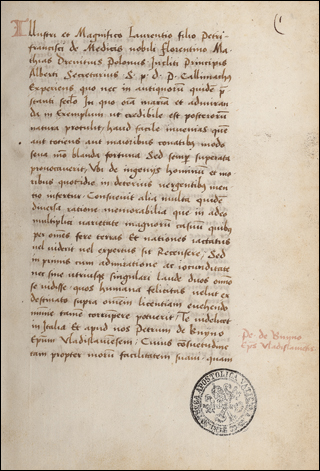 Illustri et Magnifico Laurentio filio Petri
francisci de Medicis nobili florentino Ma
thias Drevitius Polonus Incliti Principis
Alberti Secretarius S. p. d. P. Callimachus
Experiens quo nec in antiquorū quidē p
stanti seclo In quo oīa maxia et admiran
da in Exemplum ut credibile est posterorū
natura protulit haud facile invenias quē
aut tociens aut maioribus conatibus modo
seva mō blanda fortuna Sed semp superata
promoverit Ubi de ingenijs hominū et mo
ribus quotidie in deterius vergentibus men
tio infertur Consuevit alia multa quidē
diversa ratione memorabilia que in adeo
multiplici varietate magnorū casuū quibus
per omēs fere terras et nationes iactatus
vel vidit vel expertus sit Recensere Sed
in primis cum admiratione ac iocunditate
nec sine utriusque singulari laude duos omnino
se vidisse quos humana felicitas velut ex
destinato supra omēm licentiam evehendo
minime tamē corrumpere potuerit Te videlicet
in Italia et apud nos Petrum de Bnyno
Epum Vladislaviēsem Cuius consuetudine
tam propter morū facilitatem suavi quam
Pe. de Bnyno
Eps Vladislaviēsis